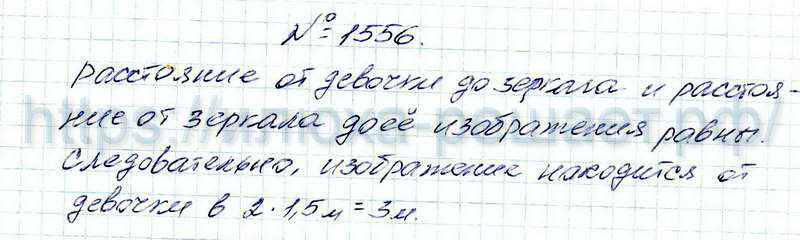 № 1556.
расстояние от девочки до зеркала и расстоя-
ние от зеркала до её изображения равны.
Следовательно, изображение находится от
девочки в 2·1,5м = 3м.